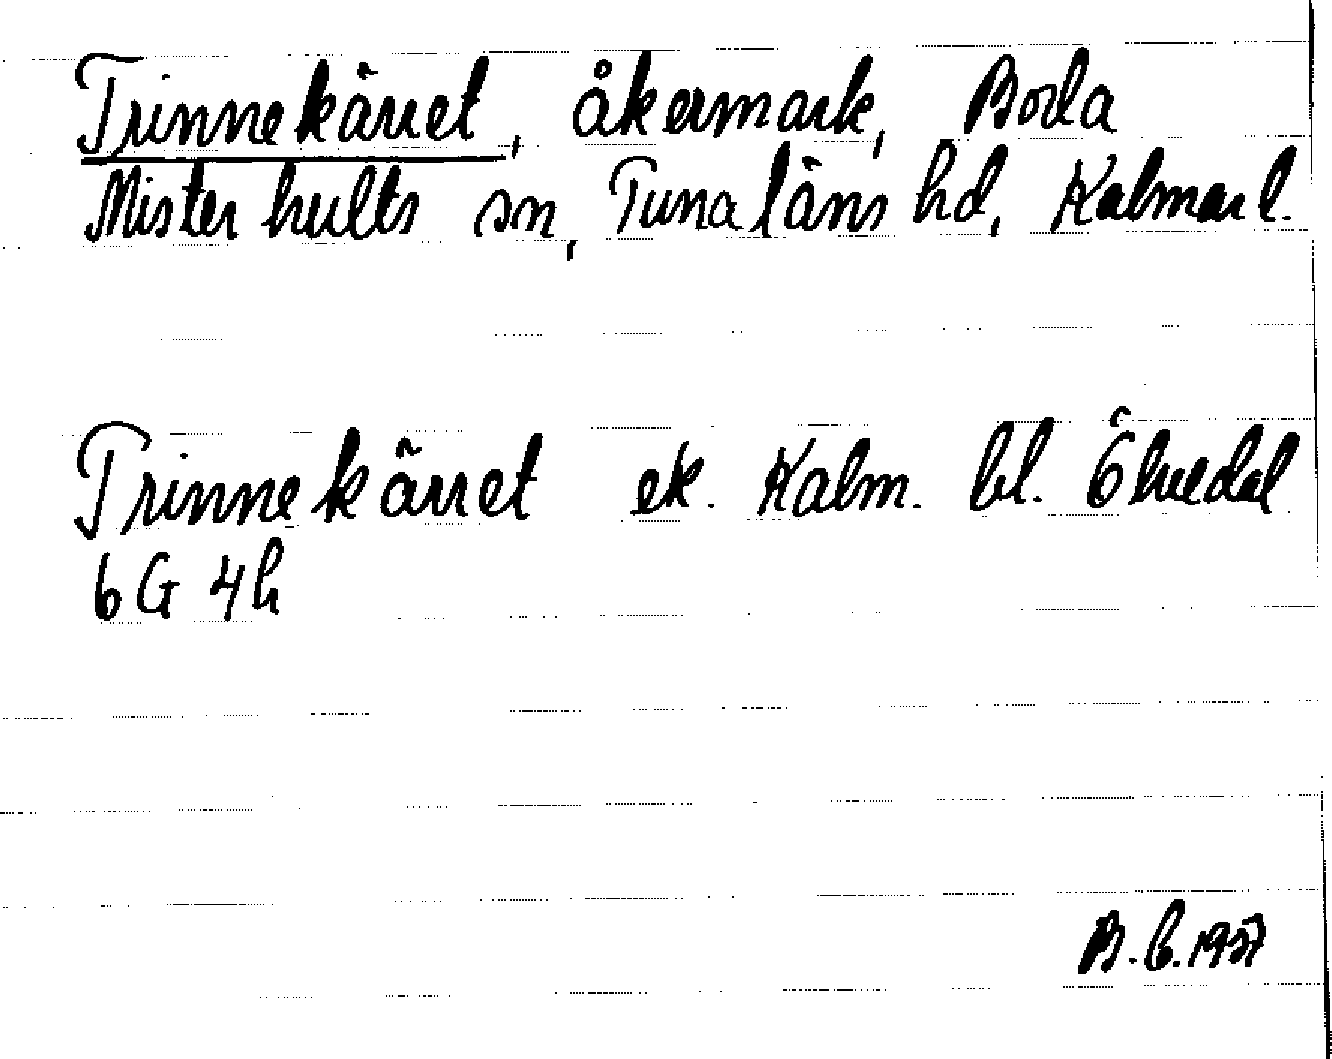 Trinnekärret, åkermark, Boda
Misterhults sn, Tunaläns hd, Kalmar l.
Trinnekärret ek. Kalm. bl. Ölvedal
6G 4h
B.C. 1937